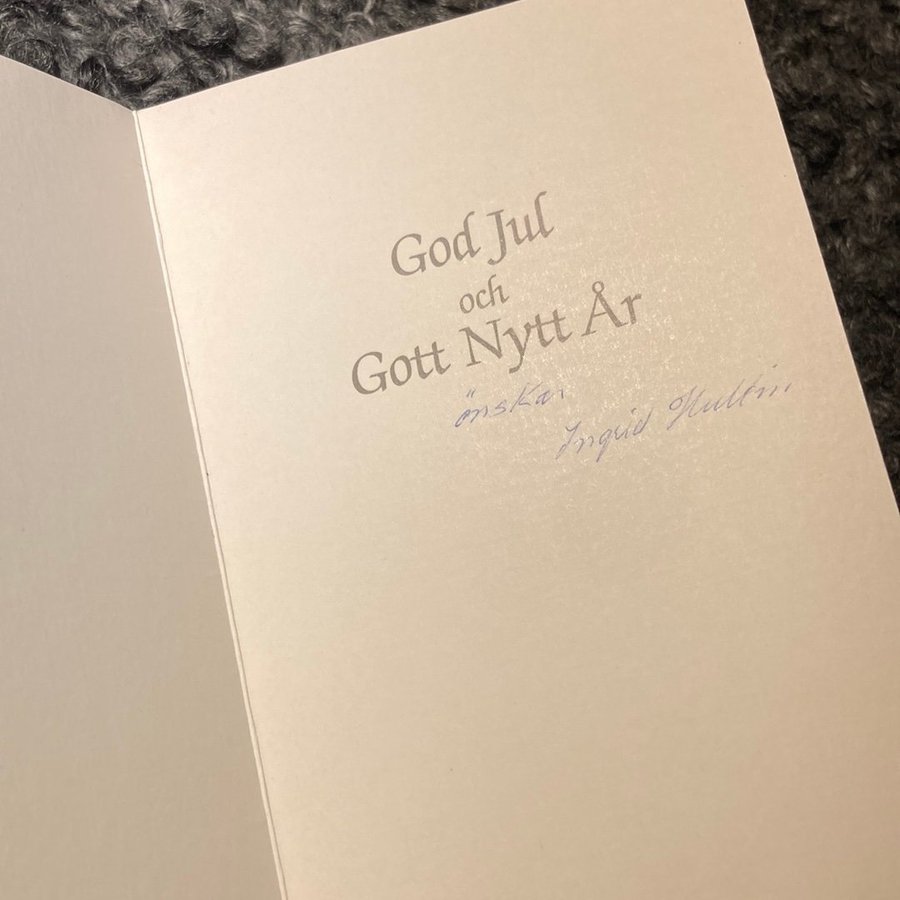 God Jul
och
Gott Nytt År
önskar
Ingrid Hultin